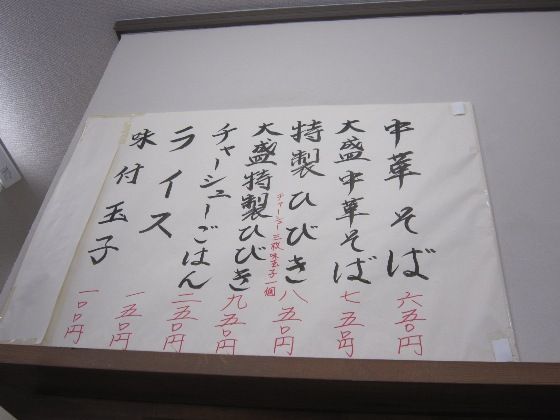 中華そば 六五〇円
大盛中華そば 七五〇円
特製ひびき 八五〇円
チャーシュー三枚味玉子一個
大盛特製ひびき 九五〇円
チャーシューごはん 二五〇円
ライス 一五〇円
味付玉子 一〇〇円